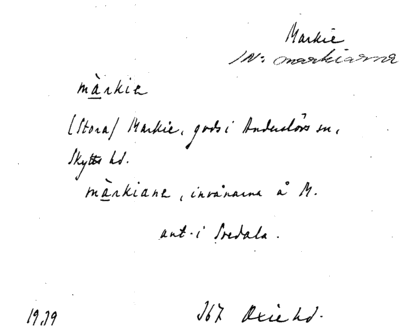 Markie
IN: markiarna
màrkie
(Stora) Markie, gods i Anderslövs sn,
Skytts hd.
màrkiane, invånarna å M.
ant. i Svedala.
1939 367 Oxie hd.